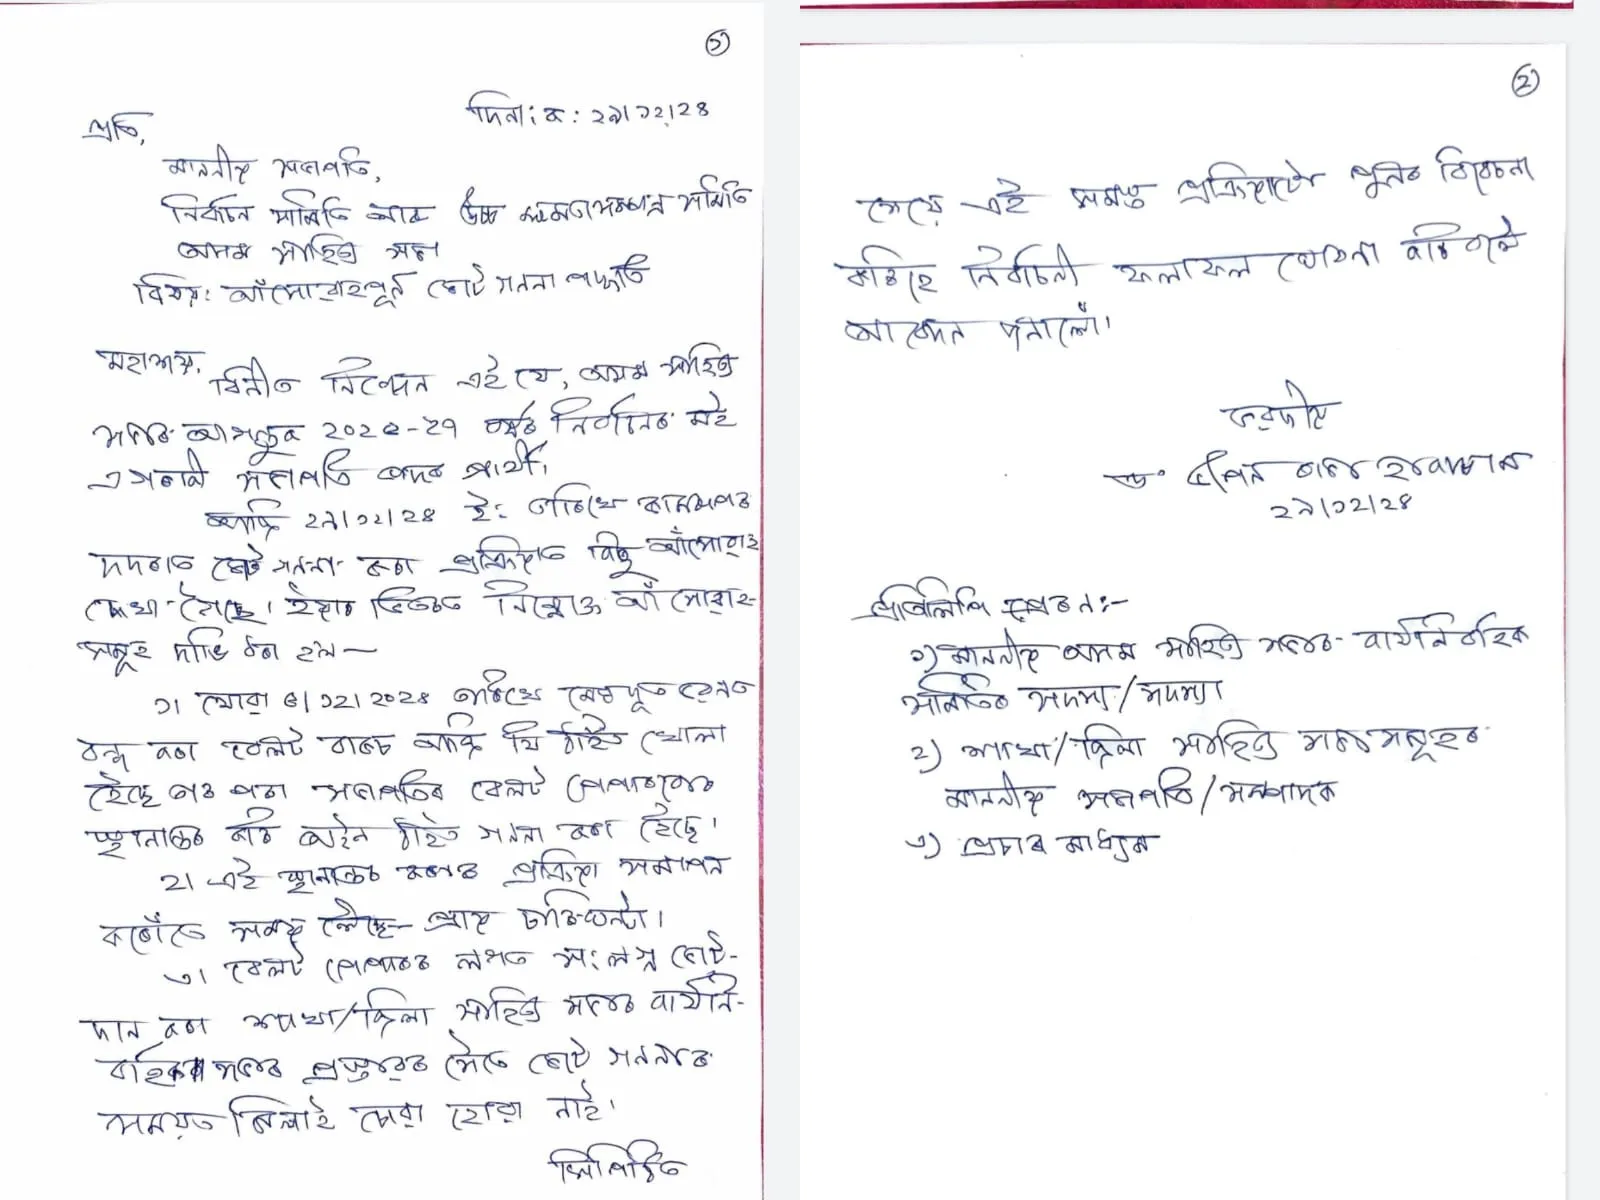 ১
দিনাংক: ২৯/১২/২৪
প্ৰতি,
মাননীয় সভাপতি,
নিৰ্বাচন সমিতি আৰু উচ্চ ক্ষমতাসম্পন্ন সমিতি
অসম সাহিত্য সভা
বিষয়: আঁসোৱাহপূৰ্ণ ভোট গননা পদ্ধতি
মহাশয়,
বিনীত নিবেদন এই যে, অসম সাহিত্য
সভাৰ আগন্তুক ২০২৫-২৭ বৰ্ষৰ নিৰ্বাচনৰ মই
এগৰাকী সভাপতি পদৰ প্ৰাৰ্থী।
আজি ২৯/১২/২৪ ইং তাৰিখে
ভোট গননা কৰা প্ৰক্ৰিয়াত কিছু আঁসোৱাহ
দেখা গৈছে। ইয়াৰ ভিতৰত নিম্নোক্ত আঁসোৱাহ
সমূহ দাঙি ধৰা হ'ল —
১। যোৱা ৫/১২/২০২৪ তাৰিখে
বন্ধ কৰা বেলট বাকচ আজি যি ঠাইত খোলা
হৈছে তাৰ পৰা সভাপতিৰ বেলট পেপাৰবোৰ
স্থানান্তৰ কৰি আইন ঠাইত গননা কৰা হৈছে।
২। এই স্থানান্তৰ কৰাৰ প্ৰক্ৰিয়া সমাপন
কৰোঁতে সময় লৈছে প্ৰায় চাৰিঘন্টা।
৩। বেলট পেপাৰৰ লগত সংলগ্ন ভোট-
দান কৰা শাখা/জিলা সাহিত্য সভাৰ কাৰ্যনি-
ৰ্বাহকৰ সভাৰ প্ৰস্তাৱৰ সৈতে ভোট গননাৰ
সময়ত মিলাই চোৱা হোৱা নাই।
২
সেয়ে এই সমস্ত প্ৰক্ৰিয়াটো পুনৰ বিবেচনা
কৰিহে নিৰ্বাচনী ফলাফল ঘোষনা কৰিবলৈ
আবেদন জনালোঁ।
ভৱদীয়
ড° দীপেন
২৯/১২/২৪
প্ৰতিলিপি প্ৰেৰন:-
১) মাননীয় অসম সাহিত্য সভাৰ কাৰ্যনিৰ্বাহক
সমিতিৰ সদস্য/সদস্যা
২) শাখা/জিলা সাহিত্য সভাসমূহৰ
মাননীয় সভাপতি/সম্পাদক
৩) প্ৰচাৰ মাধ্যম